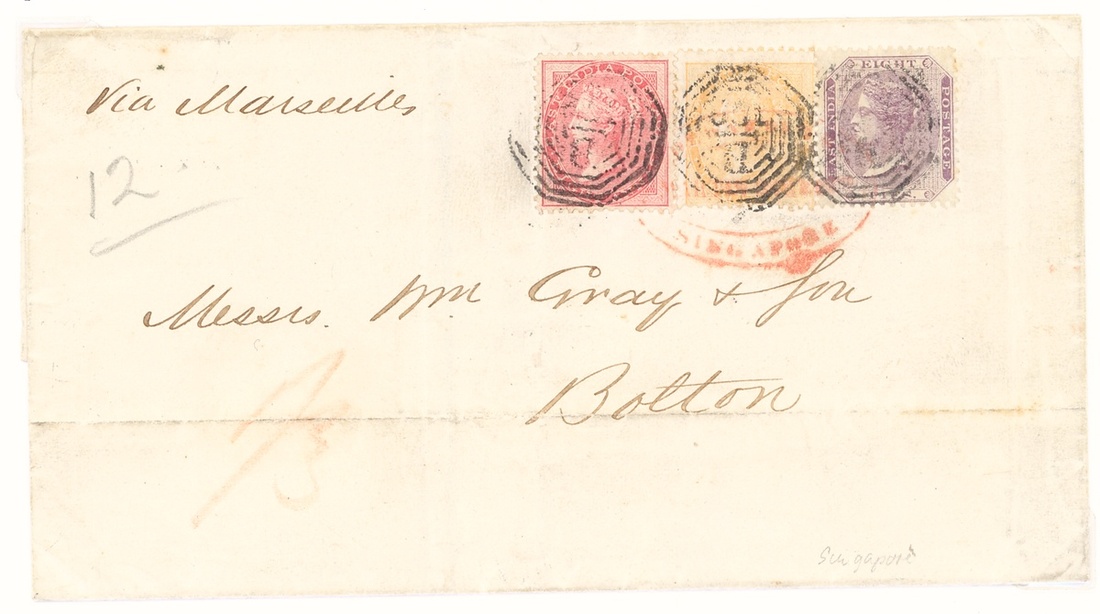 EAST INDIA PO
EIGHT
EAST INDIA
POSTAGE
B
172
Via Marseilles
12
SINGAPORE
Messrs. Wm Gray & Son
Bolton
1/3
Singapore